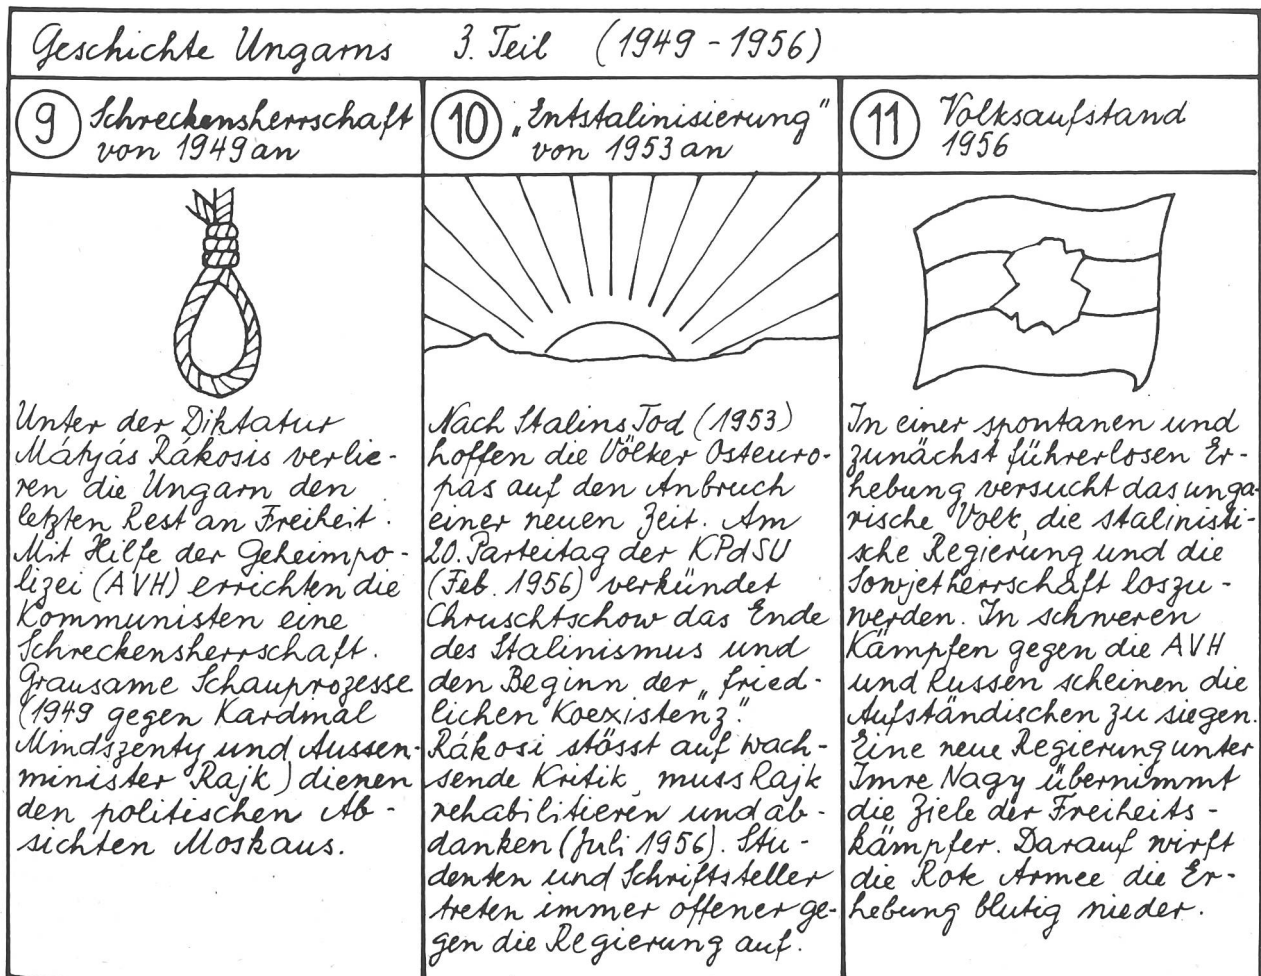 Geschichte Ungarns 3. Teil (1949-1956)
9 Schreckensherrschaft
von 1949 an
Unter der Diktatur
Mátyás Rákosis verlie-
ren die Ungarn den
letzten Rest an Freiheit.
Mit Hilfe der Geheimpo-
lizei (AVH) errichten die
Kommunisten eine
Schreckensherrschaft.
Grausame Schauprozesse
(1949 gegen Kardinal
Mindszenty und Aussen-
minister Rajk) dienen
den politischen Ab-
sichten Moskaus.
10 „Entstalinisierung"
von 1953 an
Nach Stalins Tod (1953)
hoffen die Völker Osteuro-
pas auf den Anbruch
einer neuen Zeit. Am
20. Parteitag der KPdSU
(Feb. 1956) verkündet
Chruschtschow das Ende
des Stalinismus und
den Beginn der „fried-
lichen Koexistenz".
Rákosi stösst auf wach-
sende Kritik, muss Rajk
rehabilitieren und ab-
danken (Juli 1956). Stu-
denten und Schriftsteller
treten immer offener ge-
gen die Regierung auf.
11 Volksaufstand
1956
In einer spontanen und
zunächst führerlosen Er-
hebung versucht das unga-
rische Volk, die stalinisti-
sche Regierung und die
Sowjetherrschaft loszu-
werden. In schweren
Kämpfen gegen die AVH
und Russen scheinen die
Aufständischen zu siegen.
Eine neue Regierung unter
Imre Nagy übernimmt
die Ziele der Freiheits-
kämpfer. Darauf wirft
die Rote Armee die Er-
hebung blutig nieder.